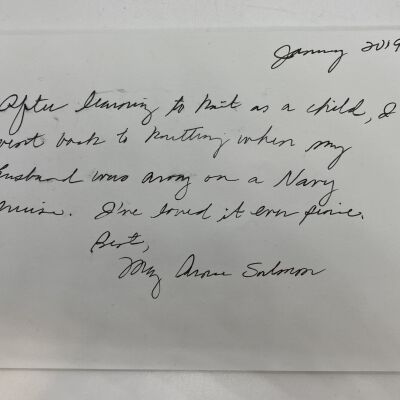 January 2019
After learning to knit as a child, I
went back to knitting when my
husband was away on a Navy
cruise. I've loved it ever since.
Best,
Mary Anne Salmon